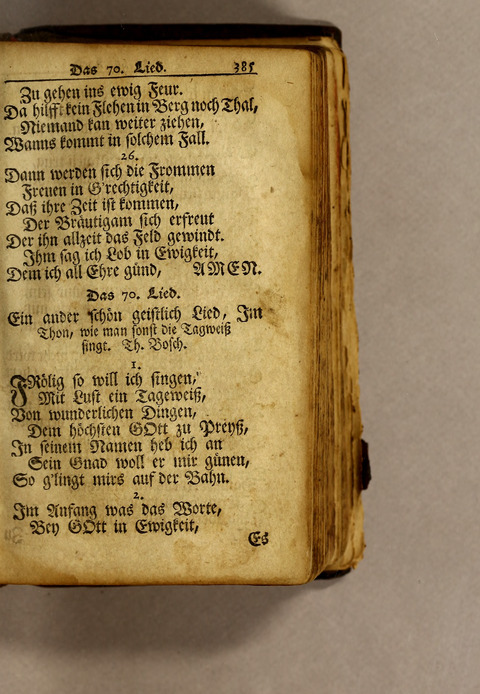 Das 70. Lied. 385
Zu gehen ins ewig Feur.
Da hilfft kein Flehen in Berg noch Thal,
Niemand kan weiter ziehen,
Wanns kommt in solchem Fall.
26.
Dann werden sich die Frommen
Freuen in G'rechtigkeit,
Daß ihre Zeit ist kommen,
Der Bräutigam sich erfreut
Der ihn allzeit das Feld gewindt.
Ihm sag ich Lob in Ewigkeit,
Dem ich all Ehre günd, AMEN.
Das 70. Lied.
Ein ander schön geistlich Lied, Im
Thon, wie man sonst die Tagweiß
singt. Th. Bosch.
1.
FRölig so will ich singen,
Mit Lust ein Tageweiß,
Von wunderlichen Dingen,
Dem höchsten GOtt zu Preyß,
In seinem Namen heb ich an
Sein Gnad woll er mir günen,
So g'lingt mirs auf der Bahn.
2.
Im Anfang was das Worte,
Bey GOtt in Ewigkeit,
Es